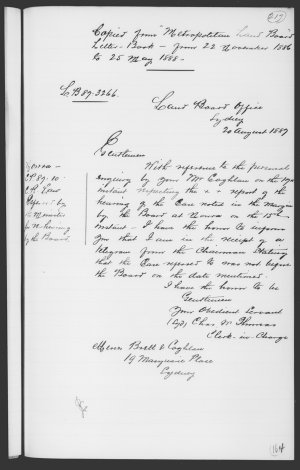 217
Copied from "Metropolitan Land Board
Letter-Book - from 22 November 1886
to 25 May 1888-
LB 87.3266
Land Board Office
Sydney
20 August 1887
Gentlemen
With reference to the personal
enquiry by your Mr Coghlan on the
instant respecting the report of the
hearing of the Case noted in the margin
by the Board at Nowra on the
instant - I have the honor to inform
you that I am in the receipt of a
telegram from the Chairman stating
that the Case referred to was not before
the Board on the date mentioned.
I have the honor to be
Gentlemen
Your Obedient Servant
Chas
Clerk-in-Charge
Nowra -
87.10
by
the Minister
for re-hearing
by the Board
Messrs Brett & Coghlan
19 Macquarie Place
Sydney